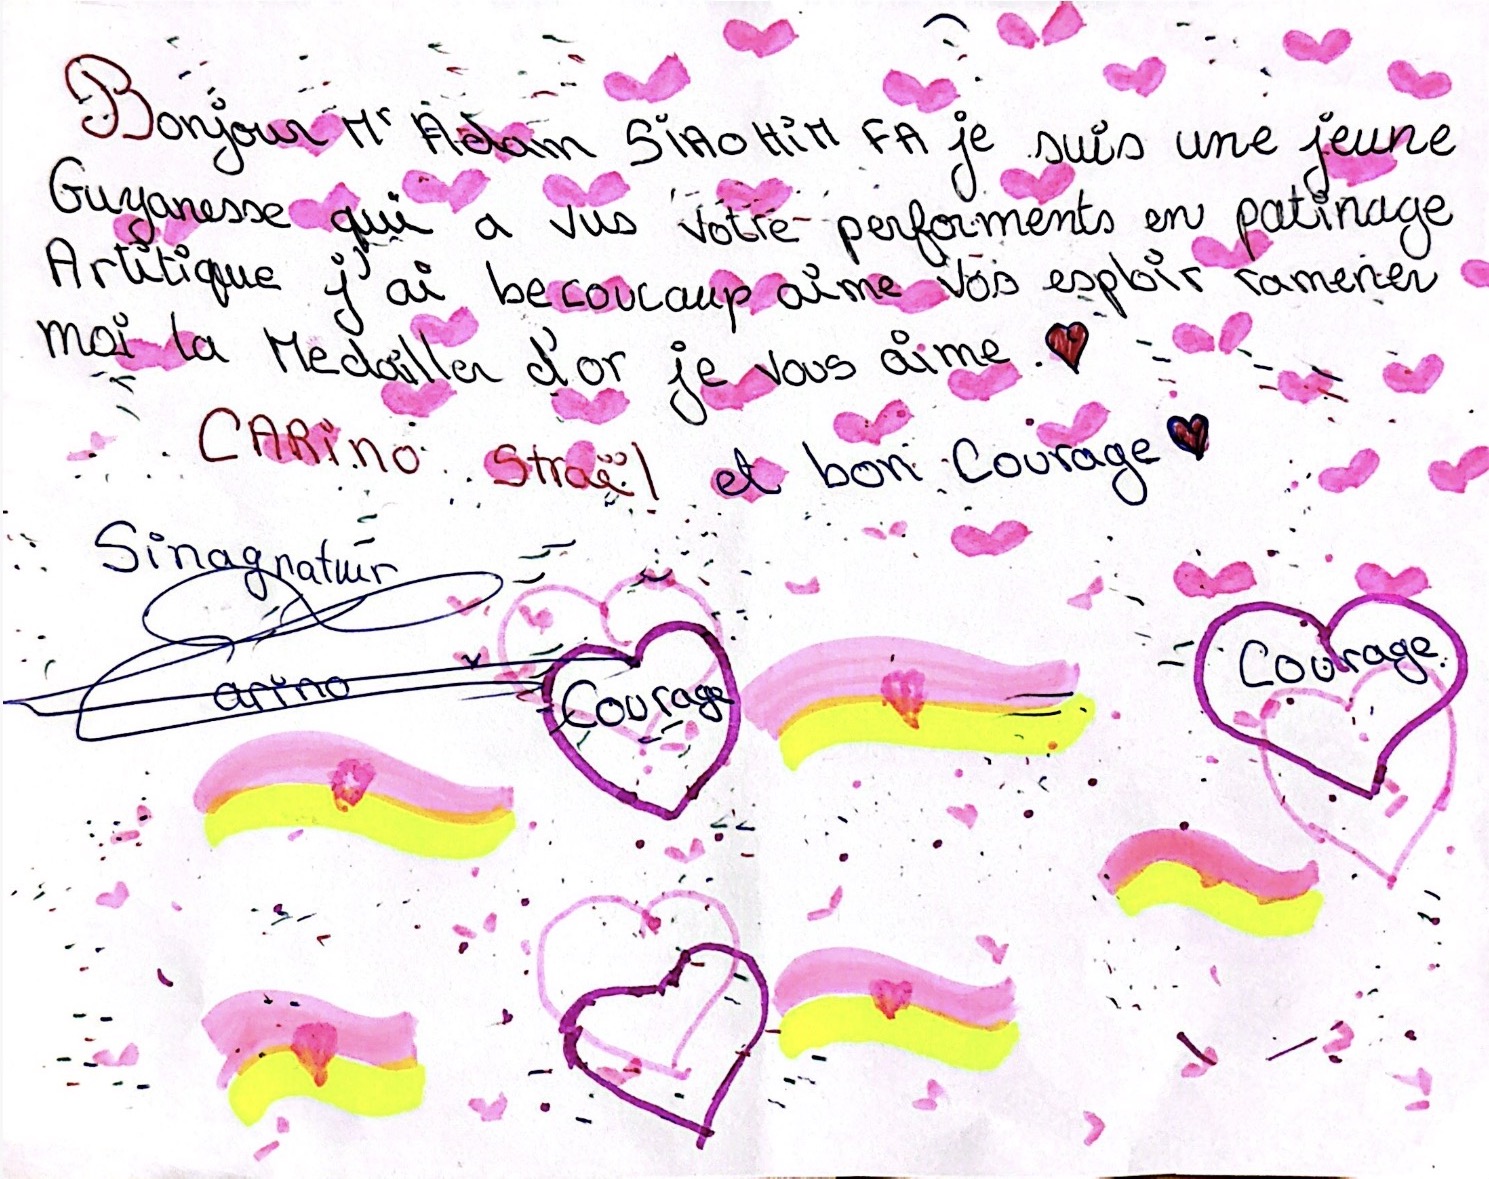 Bonjour Mr Adam SiAOHiM FA je suis une jeune
Guyanesse qui a vus votre performents en patinage
Artitique j'ai becoucaup aime vos esploir ramener
moi la Medailler d'or je vous aime.
CARiNO Straël et bon Courage
Sinagnatuir
arino
Courage
Courage